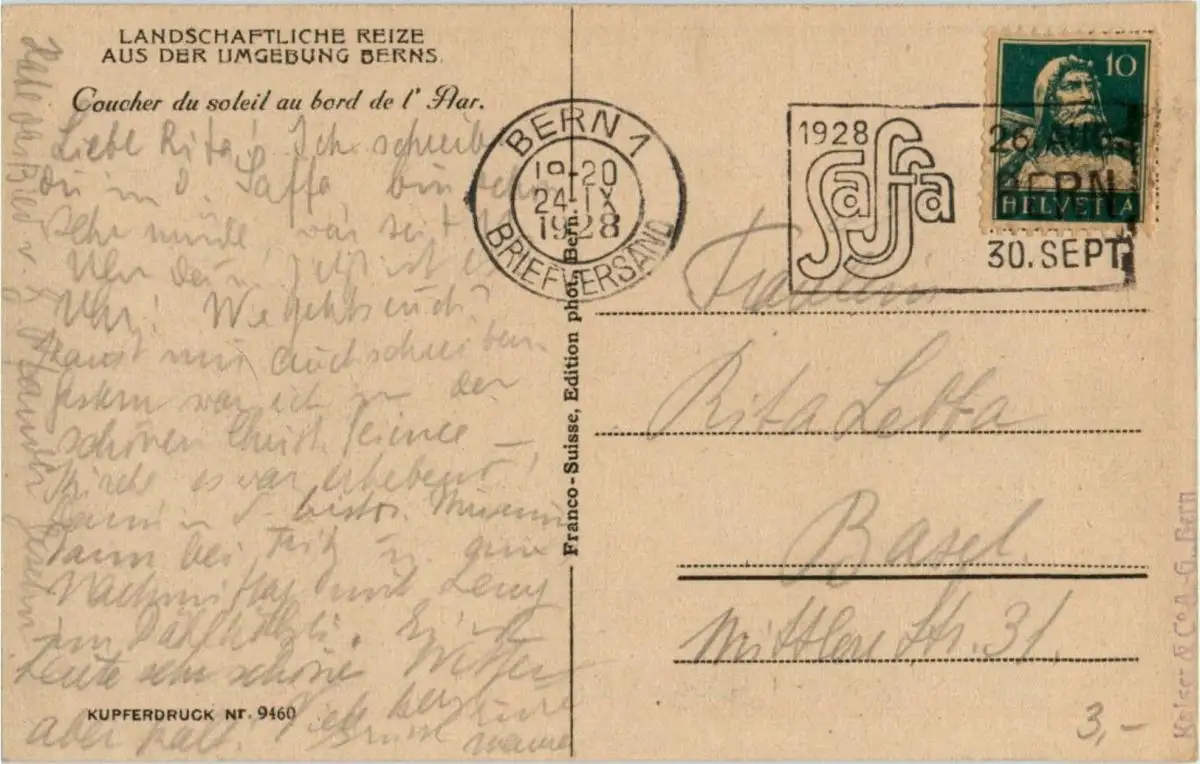 LANDSCHAFTLICHE REIZE
AUS DER UMGEBUNG BERNS.
Coucher du soleil au bord de l' Aar.
Liebe Rita! Ich schreibe
dir in d. Saffa bin schon
sehr müde, war seit
Uhr da
Uhr! Wie geht's euch?
Kannst mir auch schreiben.
Gestern war ich in der
schönen Christ. Science
Kirche es war erhebend!
Dann in d. histor. Museum
Dann bei Fritz u.
Nachmittag mit Leny
im Dählhölzli. Es ist
heute sehr schönes Wetter
aber kalt. Viele herz
KUPFERDRUCK Nr. 9460
Franco-Suisse, Edition phot. Bern.
BERN 1
19-20
24.IX
1928
BRIEFVERSAND
1928
Saffa
26. AUG.
BERN
30. SEPT.
10
HELVETIA
Fräulein
Rita
Basel.
Mittlere Str. 31.
3,-
Kaiser & Co A.-G. Bern